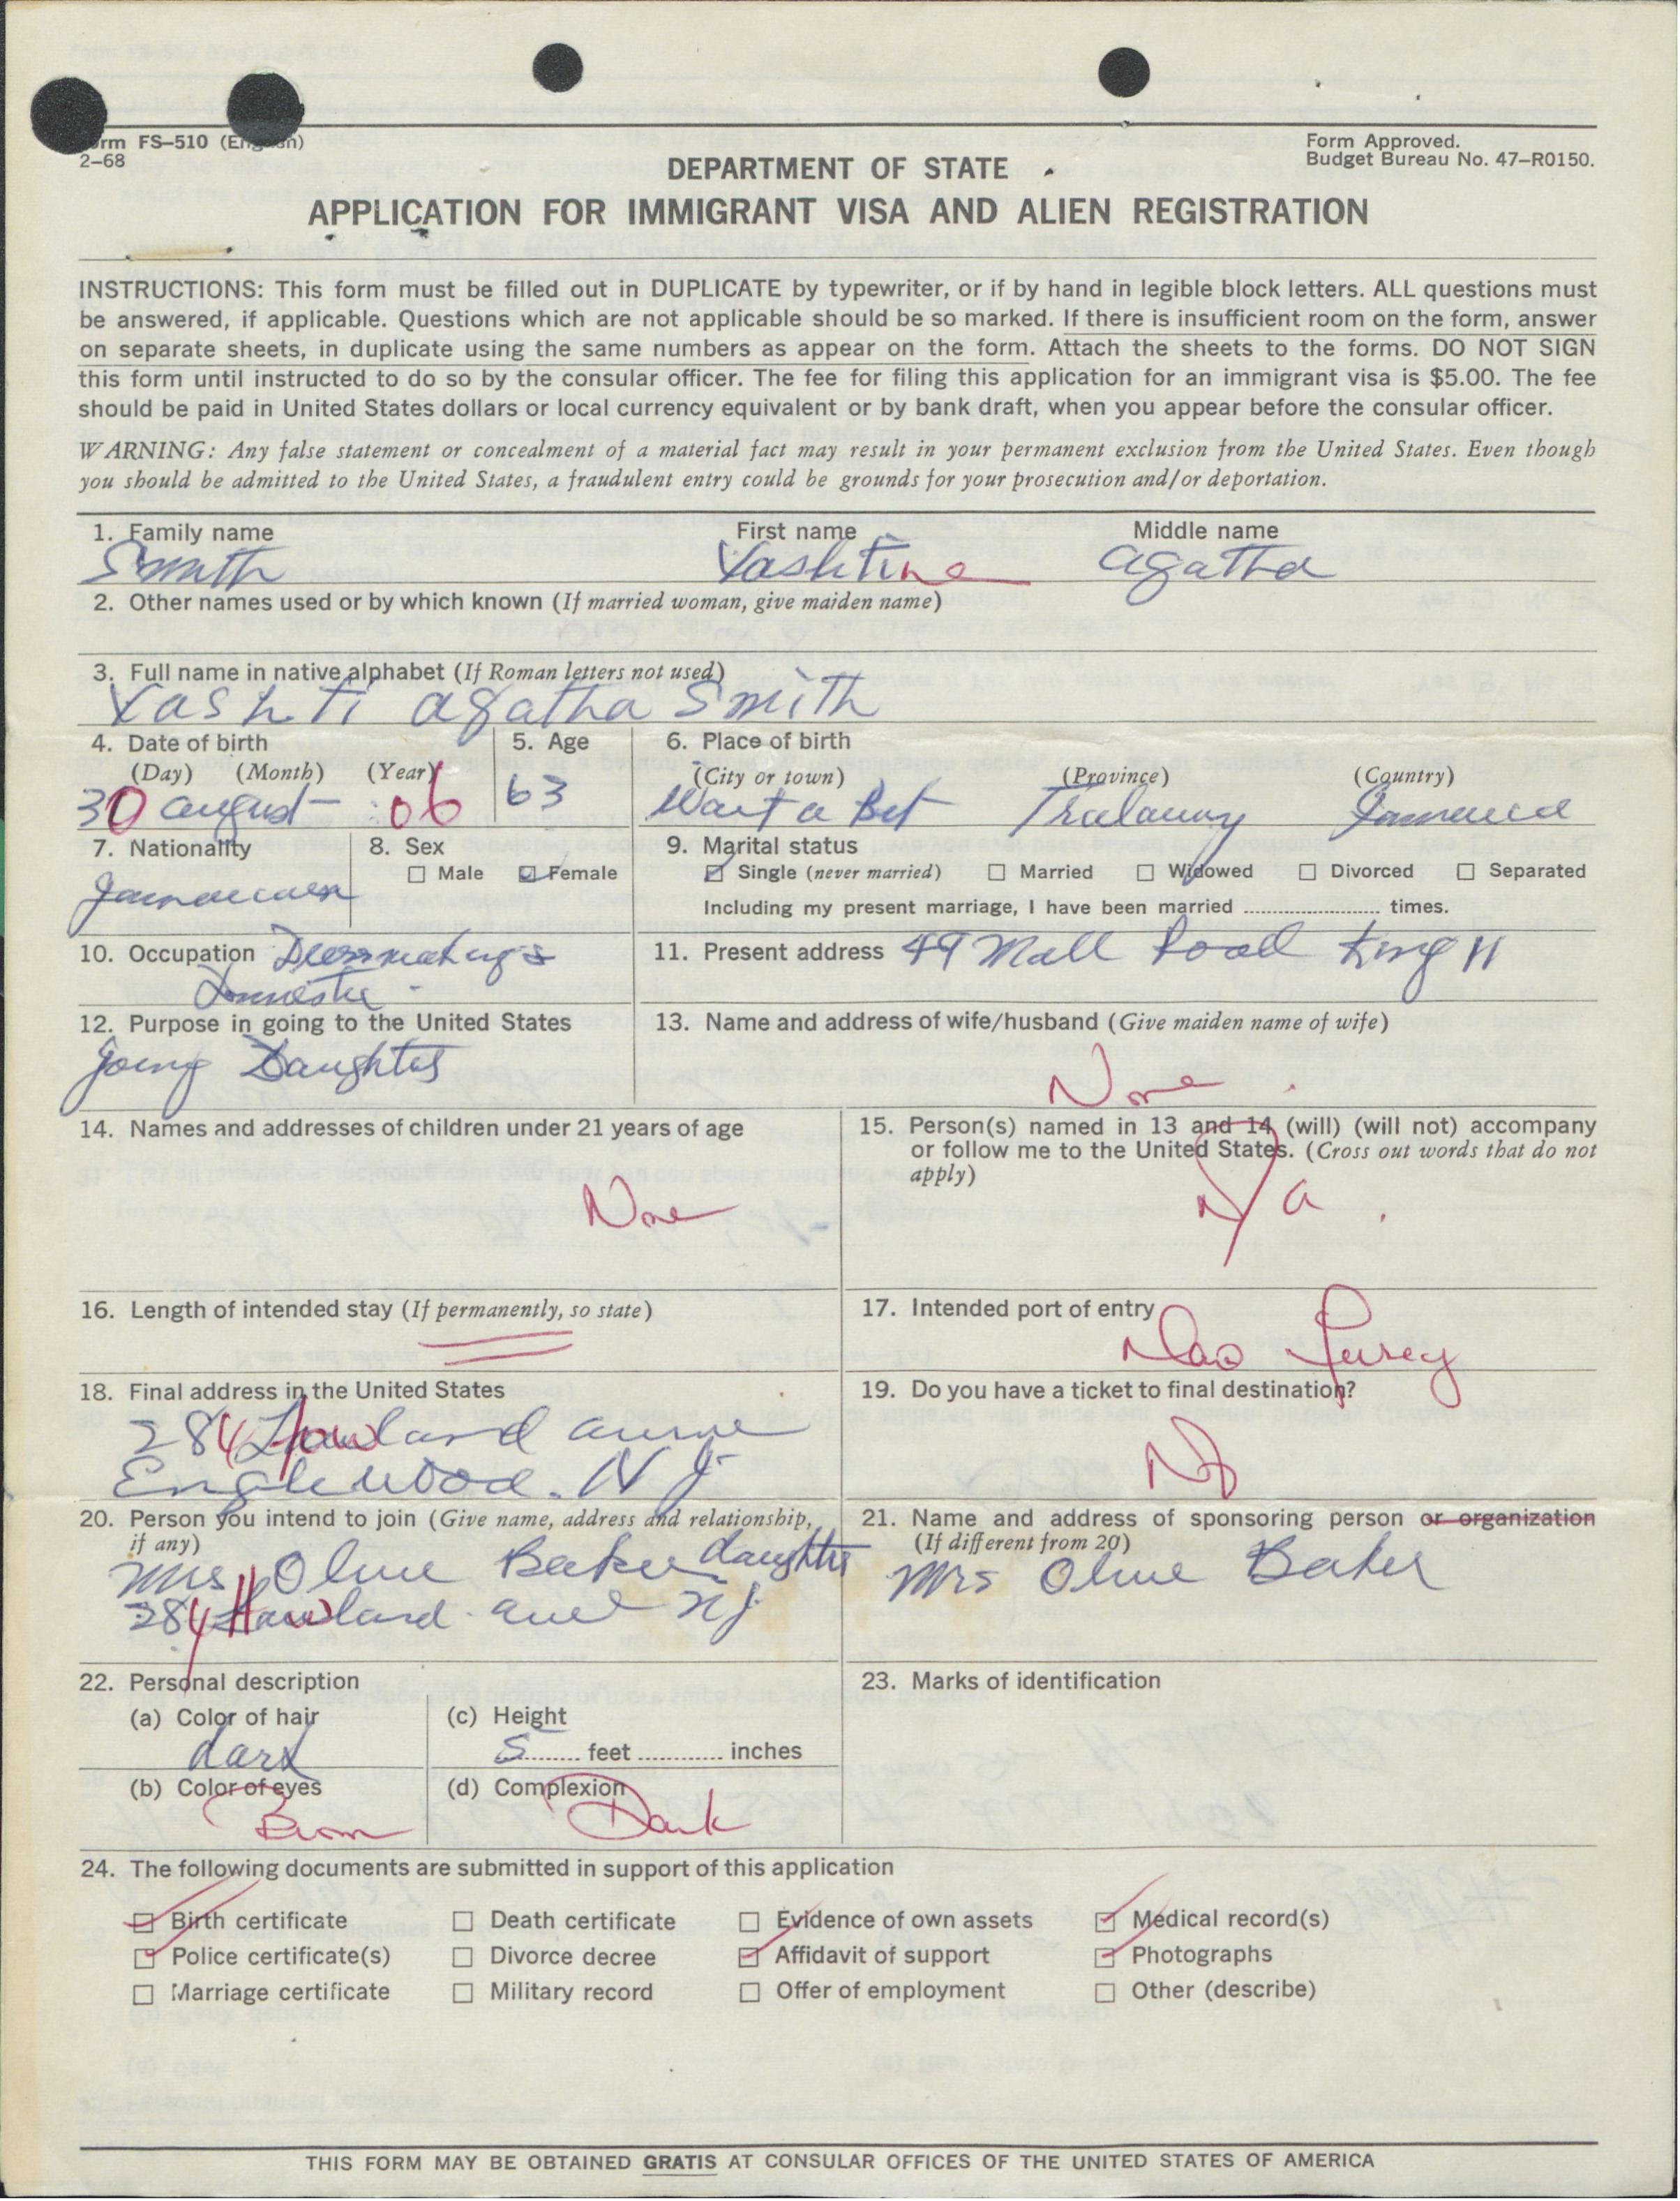 Form FS-510 (English)
2-68
Form Approved.
Budget Bureau No. 47-R0150.
DEPARTMENT OF STATE
APPLICATION FOR IMMIGRANT VISA AND ALIEN REGISTRATION
INSTRUCTIONS: This form must be filled out in DUPLICATE by typewriter, or if by hand in legible block letters. ALL questions must
be answered, if applicable. Questions which are not applicable should be so marked. If there is insufficient room on the form, answer
on separate sheets, in duplicate using the same numbers as appear on the form. Attach the sheets to the forms. DO NOT SIGN
this form until instructed to do so by the consular officer. The fee for filing this application for an immigrant visa is $5.00. The fee
should be paid in United States dollars or local currency equivalent or by bank draft, when you appear before the consular officer.
WARNING: Any false statement or concealment of a material fact may result in your permanent exclusion from the United States. Even though
you should be admitted to the United States, a fraudulent entry could be grounds for your prosecution and/or deportation.
1. Family name First name Middle name
Smith Vashtine agatha
2. Other names used or by which known (If married woman, give maiden name)
3. Full name in native alphabet (If Roman letters not used)
Vashti agatha Smith
4. Date of birth 5. Age 6. Place of birth
(Day) (Month) (Year) (City or town) (Province) (Country)
30 august 06 63 Wait a Bit Tralawny Jamaica
7. Nationality 8. Sex 9. Marital status
Male Female Single (never married) Married Widowed Divorced Separated
Jamaican
Including my present marriage, I have been married ........ times.
10. Occupation Dressmaking &
Domestic
11. Present address 49 Mall Road King 11
12. Purpose in going to the United States
Joing Daughter
13. Name and address of wife/husband (Give maiden name of wife)
None
14. Names and addresses of children under 21 years of age
None
15. Person(s) named in 13 and 14 (will) (will not) accompany
or follow me to the United States. (Cross out words that do not
apply)
N/a
16. Length of intended stay (If permanently, so state)
17. Intended port of entry
Jersey
18. Final address in the United States
284 Howland avenue
Englewood. N J
19. Do you have a ticket to final destination?
No
20. Person you intend to join (Give name, address and relationship,
if any)
Mrs Olive Baker daughter
284 Howland ave NJ
21. Name and address of sponsoring person or organization
(If different from 20)
Mrs Olive Baker
22. Personal description
(a) Color of hair
dark
(c) Height
5 feet ............ inches
(b) Color of eyes
Brown
(d) Complexion
Dark
23. Marks of identification
24. The following documents are submitted in support of this application
Birth certificate Death certificate Evidence of own assets Medical record(s)
Police certificate(s) Divorce decree Affidavit of support Photographs
Marriage certificate Military record Offer of employment Other (describe)
THIS FORM MAY BE OBTAINED GRATIS AT CONSULAR OFFICES OF THE UNITED STATES OF AMERICA